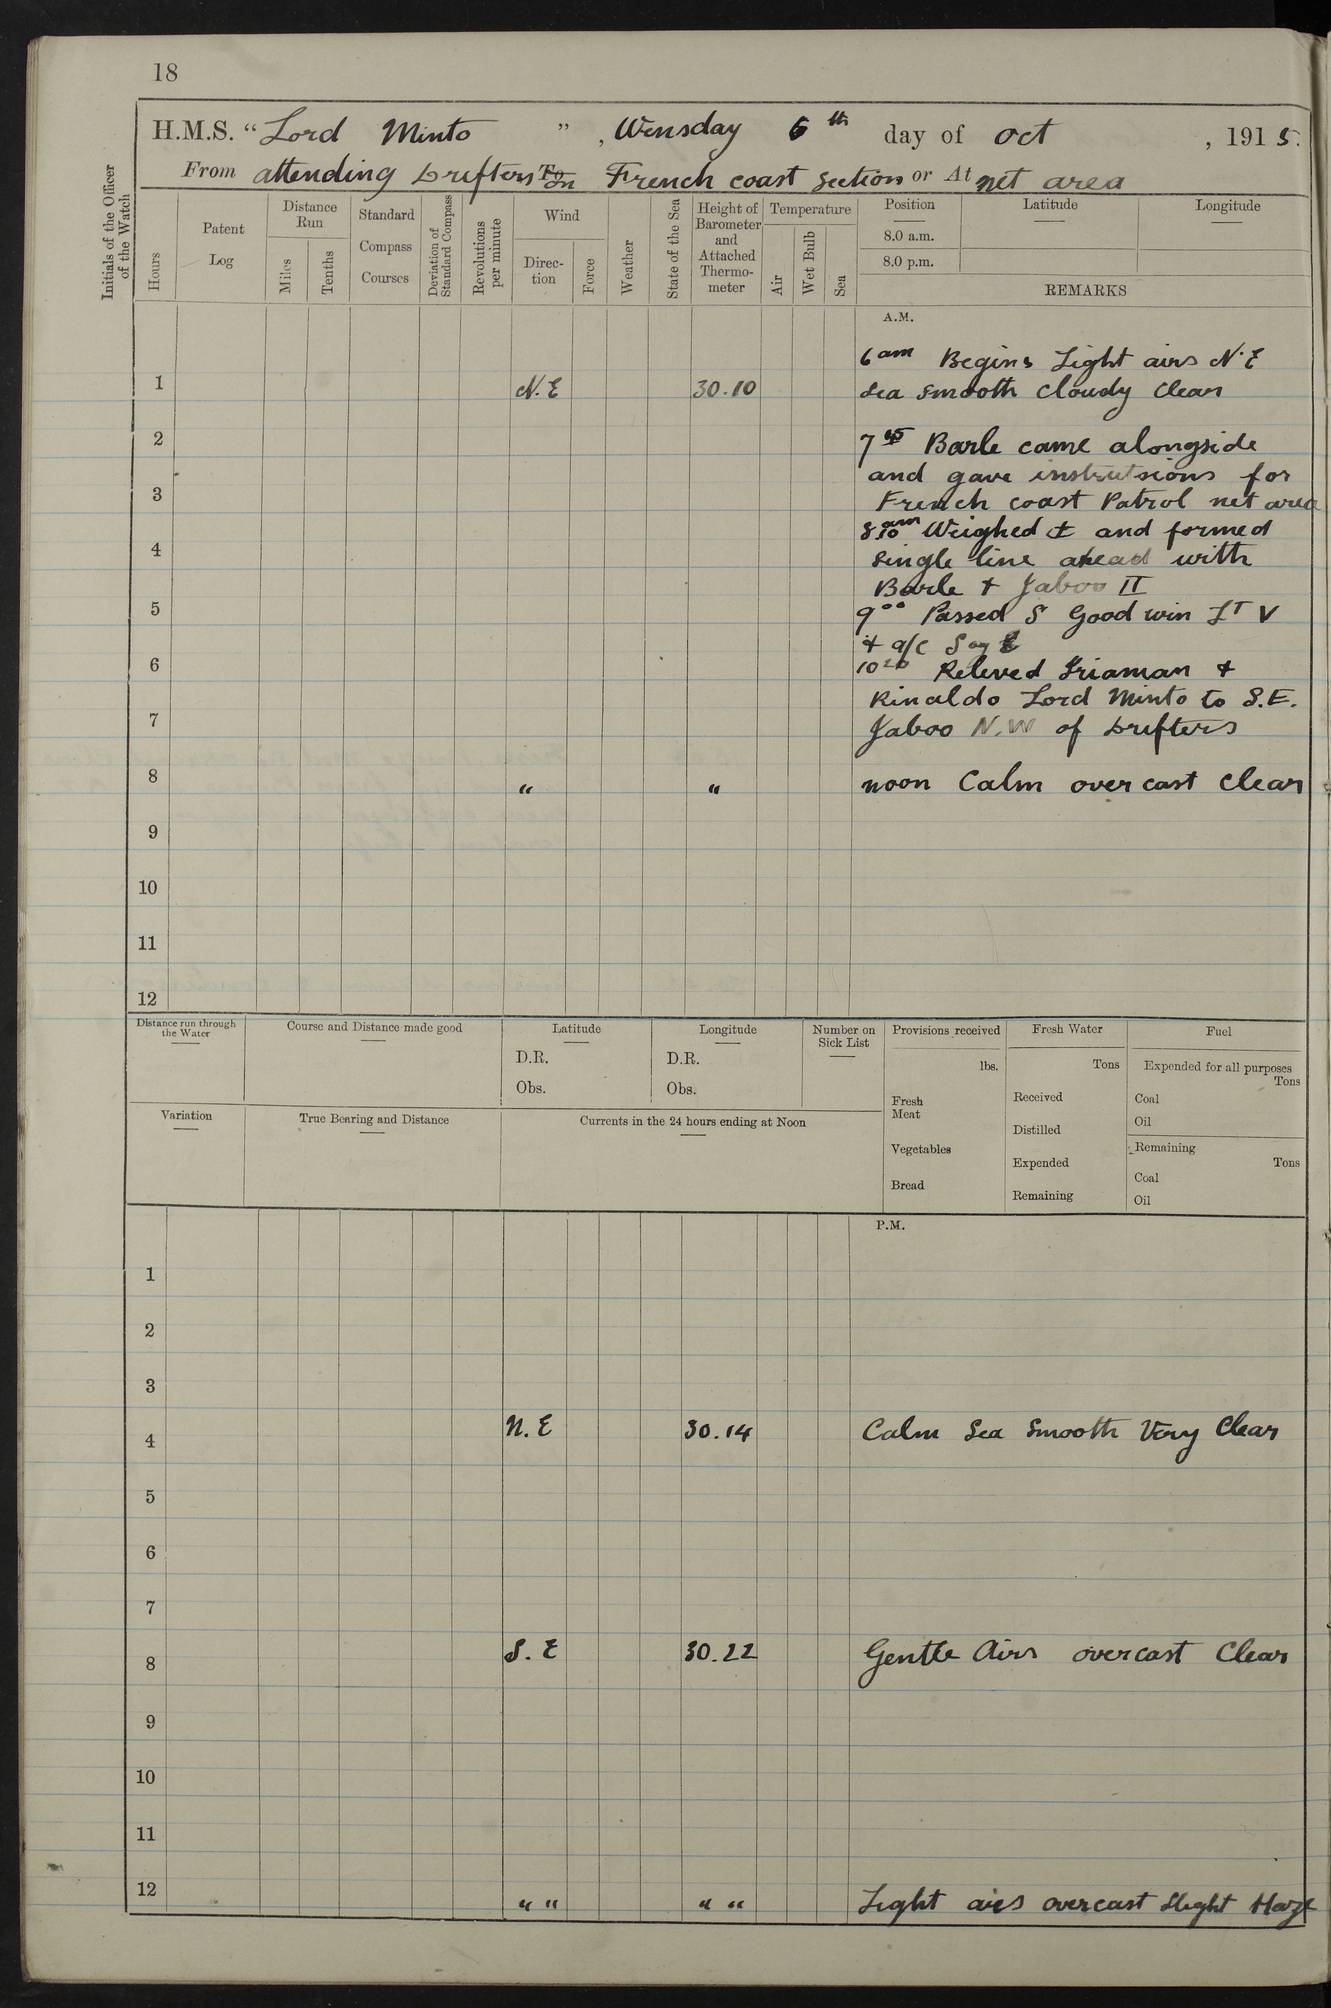 18
H.M.S. "Lord Minto", Wensday 6th day of Oct, 1915.
From attending Drifters To on French coast Section or At net area
Initials of the Officer of the Watch
Hours
Patent Log
Distance Run
Miles
Tenths
Standard Compass Courses
Deviation of Standard Compass
Revolutions per minute
Wind
Direction
Force
Weather
State of the Sea
Height of Barometer and Attached Thermometer
Temperature
Air
Wet Bulb
Sea
Position
8.0 a.m.
8.0 p.m.
Latitude
Longitude
REMARKS
A.M.
6 am Begins Light airs N.E
1 N.E 30.10 Sea smooth Cloudy Clear
2 7 45 Barle came alongside
and gave instrutsions for
3 French coast Patrol net area
8 10 am Weighed ⚓ and formed
4 single line ahead with
Barle + Jaboo II
5 9 00 Passed S Good win LT V
+ a/c S
6 10 20 Releved +
Rinaldo Lord Minto to S.E.
7 Jaboo N.W of Drifters
8 " " noon Calm over cast Clear
9
10
11
12
Distance run through the Water
Course and Distance made good
Latitude
D.R.
Obs.
Longitude
D.R.
Obs.
Number on Sick List
Provisions received
lbs.
Fresh Meat
Vegetables
Bread
Fresh Water
Tons
Received
Distilled
Expended
Remaining
Fuel
Expended for all purposes
Tons
Coal
Oil
Remaining
Tons
Coal
Oil
Variation
True Bearing and Distance
Currents in the 24 hours ending at Noon
P.M.
1
2
3
4 N.E 30.14 Calm Sea Smooth Very Clear
5
6
7
8 S.E 30.22 Gentle Airs overcast Clear
9
10
11
12 " " " " Light airs overcast Slight Haze